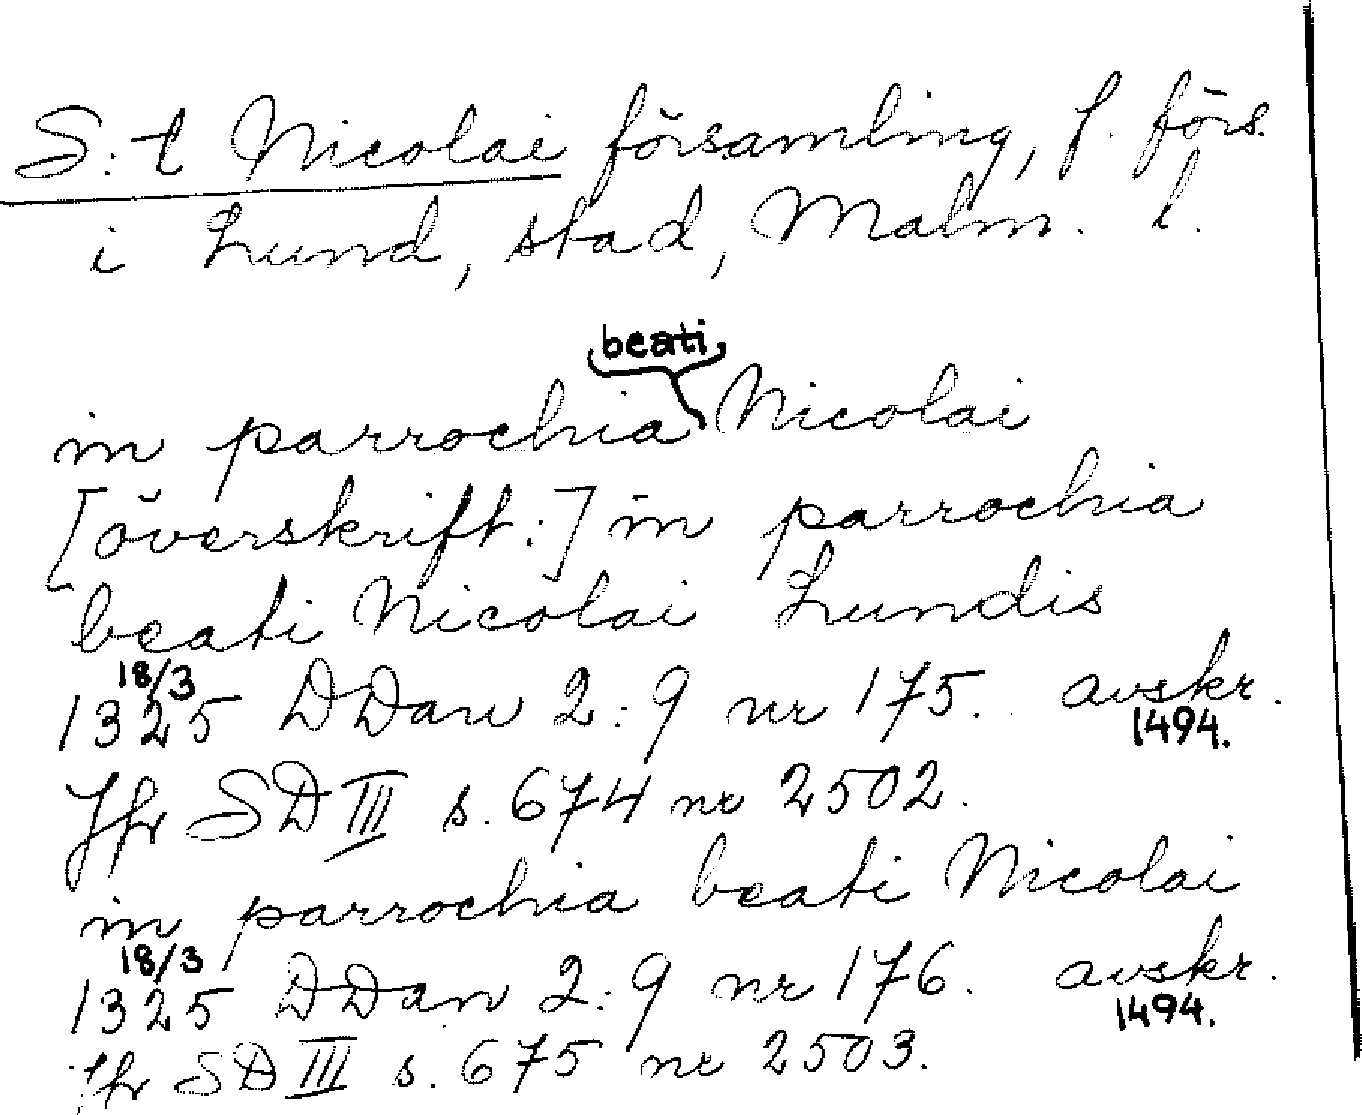 S:t Nicolai församling, f. förs.
i Lund, stad, Malm. l.
beati
in parrochia Nicolai
[överskrift:] in parrochia
beati Nicolai Lundis
18/3
1325 DDan 2:9 nr 175. avskr.
1494.
Jfr SD III s. 674 nr 2502.
in parrochia beati Nicolai
18/3
1325 DDan 2:9 nr 176. avskr.
1494.
Jfr SD III s. 675 nr 2503.